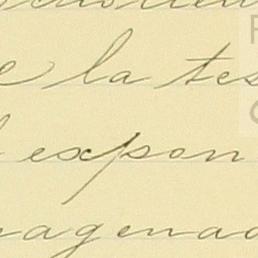 e la tes
expon
agenad